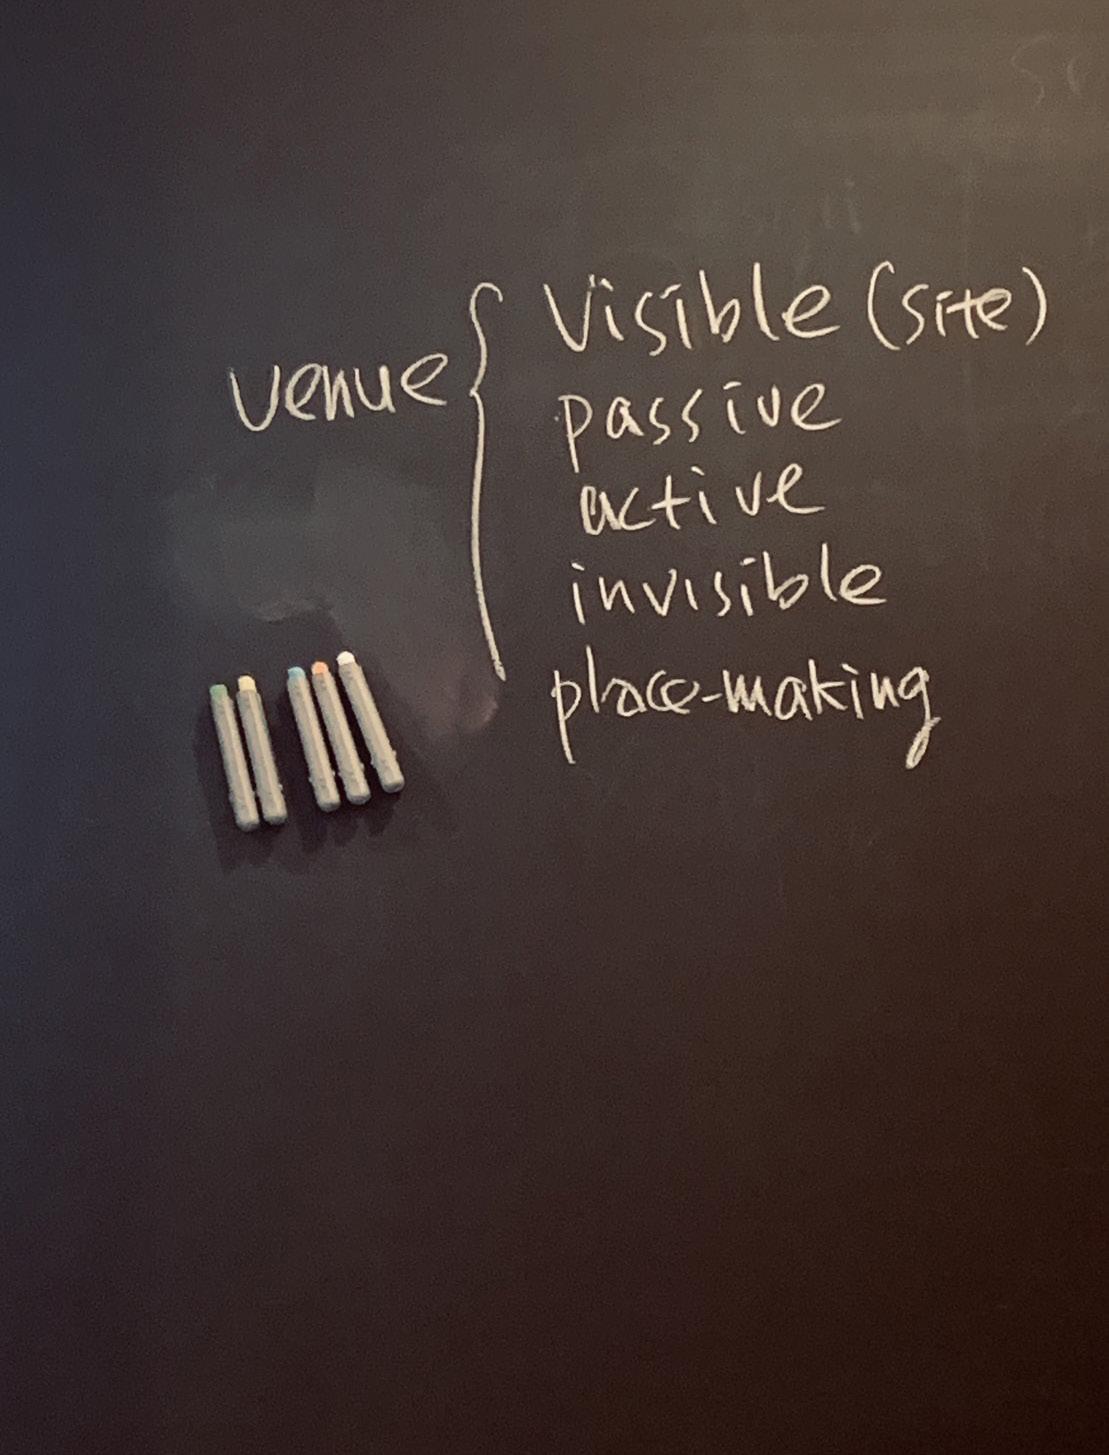 venue
Visible (site)
passive
active
invisible
place-making